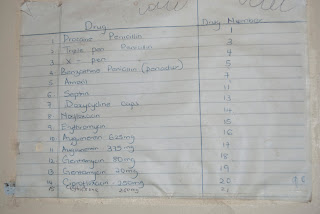 Drug Drug Number
1 Procaine Penicillin 1
2 Triple pen Penicillin
3 X - pen 4
4 Benzathine Penicillin (penadur) 5
5 Amoxil 7
6 Septrin 11
7 Doxycycline caps 13
8 14
9 Erythromycin 15
10 Augmentin 625mg 16
11 Augmentin 375mg 17
12 Gentamycin 80mg 18
13 Gentamycin 20mg 19
14 Ciprofloxacin 250mg 20
15